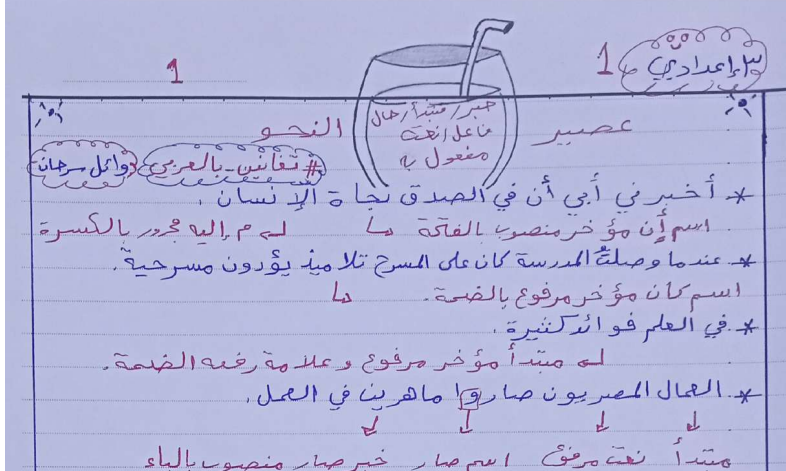 ٣ إعدادي
1
1
عصير
خبر / مبتدأ / حال
فاعل / نعت
مفعول به
النحو
# تفانين_بالعربي
وائل سرحان
* أخبرني أبي أن في الصدق نجاة الإنسان.
اسم أن مؤخر منصوب بالفتحة
م إليه مجرور بالكسرة
* عندما وصلتُ المدرسة كان على المسرح تلاميذ يؤدون مسرحية.
اسم كان مؤخر مرفوع بالضمة.
* في العلم فوائد كثيرة.
مبتدأ مؤخر مرفوع وعلامة رفعه الضمة.
* العمال المصريون صاروا ماهرين في العمل.
مبتدأ نعت مرفوع اسم صار خبر صار منصوب بالياء